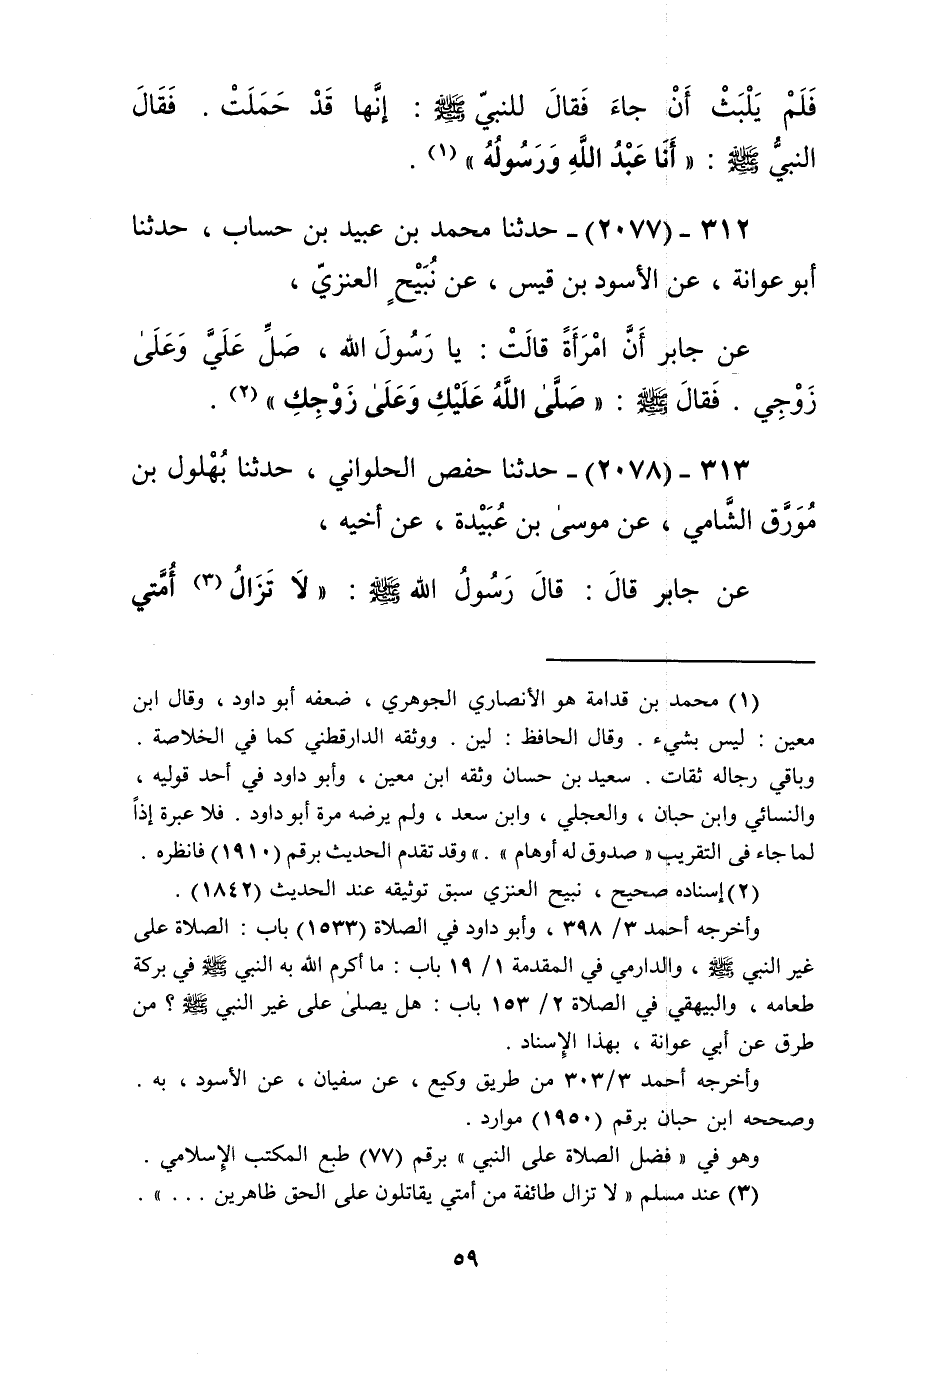 فَلَمْ يَلْبَثْ أَنْ جاءَ فَقالَ للنبيّ ﷺ : إنَّها قَدْ حَمَلَتْ . فَقَالَ
النبيُّ ﷺ : « أَنَا عَبْدُ اللَّهِ وَرَسُولُهُ » (١) .
٣١٢ ـ (٢٠٧٧) ـ حدثنا محمد بن عبيد بن حساب ، حدثنا
أبو عوانة ، عن الأسود بن قيس ، عن نُبَيْحٍ العنزيّ ،
عن جابر أَنَّ امْرَأَةً قالَتْ : يا رَسُولَ الله ، صَلِّ عَلَيَّ وَعَلَىٰ
زَوْجِي . فَقالَ ﷺ : « صَلَّىٰ اللَّهُ عَلَيْكِ وَعَلَىٰ زَوْجِكِ » (٢) .
٣١٣ ـ (٢٠٧٨) ـ حدثنا حفص الحلواني ، حدثنا بُهْلول بن
مُوَرَّق الشَّامي ، عن موسىٰ بن عُبَيْدة ، عن أخيه ،
عن جابر قالَ : قالَ رَسُولُ الله ﷺ : « لَا تَزَالُ (٣) أُمَّتي
(١) محمد بن قدامة هو الأنصاري الجوهري ، ضعفه أبو داود ، وقال ابن
معين : ليس بشيء . وقال الحافظ : لين . ووثقه الدارقطني كما في الخلاصة .
وباقي رجاله ثقات . سعيد بن حسان وثقه ابن معين ، وأبو داود في أحد قوليه ،
والنسائي وابن حبان ، والعجلي ، وابن سعد ، ولم يرضه مرة أبو داود . فلا عبرة إذاً
لما جاء في التقريب « صدوق له أوهام » .» وقد تقدم الحديث برقم (١٩١٠) فانظره .
(٢) إسناده صحيح ، نبيح العنزي سبق توثيقه عند الحديث (١٨٤٢) .
وأخرجه أحمد ٣/ ٣٩٨ ، وأبو داود في الصلاة (١٥٣٣) باب : الصلاة على
غير النبي ﷺ ، والدارمي في المقدمة ١/ ١٩ باب : ما أكرم الله به النبي ﷺ في بركة
طعامه ، والبيهقي في الصلاة ٢/ ١٥٣ باب : هل يصلىٰ على غير النبي ﷺ ؟ من
طرق عن أبي عوانة ، بهذا الإسناد .
وأخرجه أحمد ٣/ ٣٠٣ من طريق وكيع ، عن سفيان ، عن الأسود ، به .
وصححه ابن حبان برقم (١٩٥٠) موارد .
وهو في « فضل الصلاة على النبي » برقم (٧٧) طبع المكتب الإسلامي .
(٣) عند مسلم « لا تزال طائفة من أمتي يقاتلون على الحق ظاهرين ... » .
٥٩